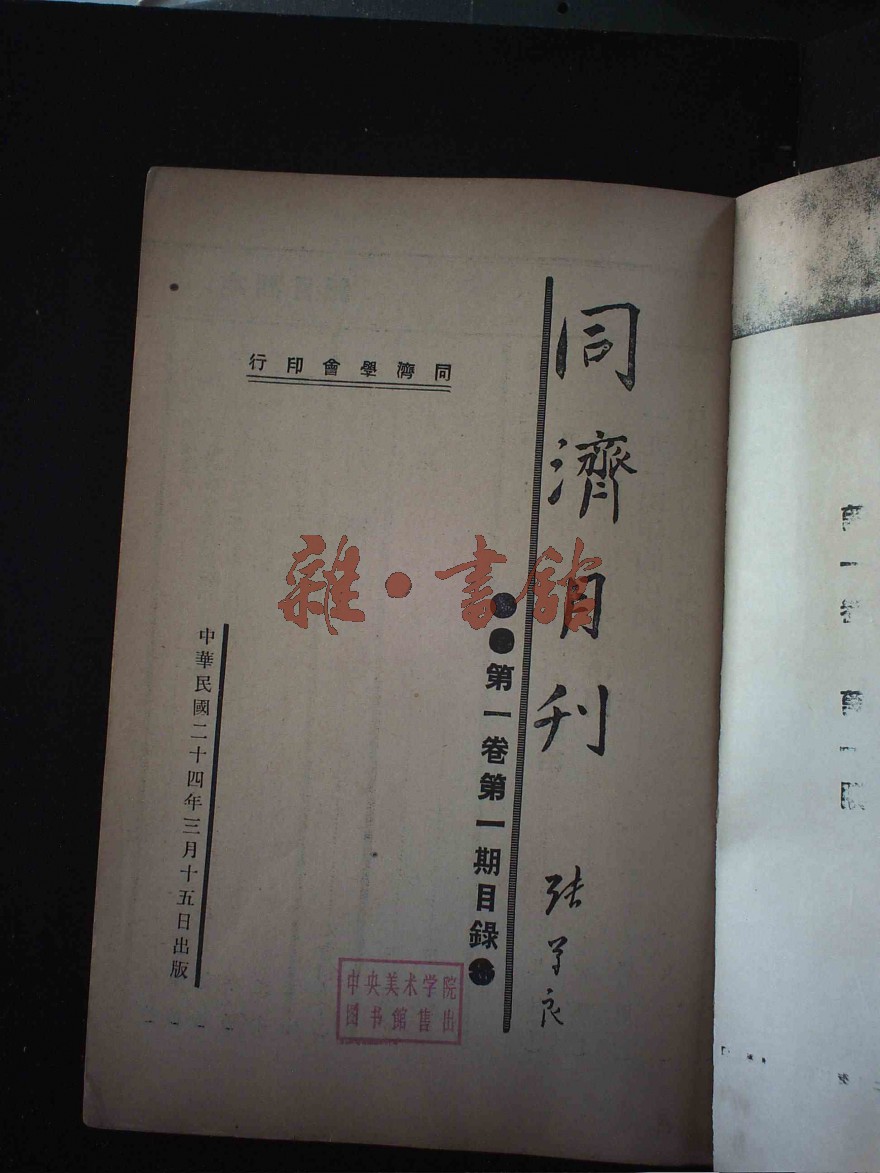 同濟月刊
張学良
第一卷第一期目錄
同濟學會印行
中華民國二十四年三月十五日出版
中央美术学院
图书馆售出
雜·書館